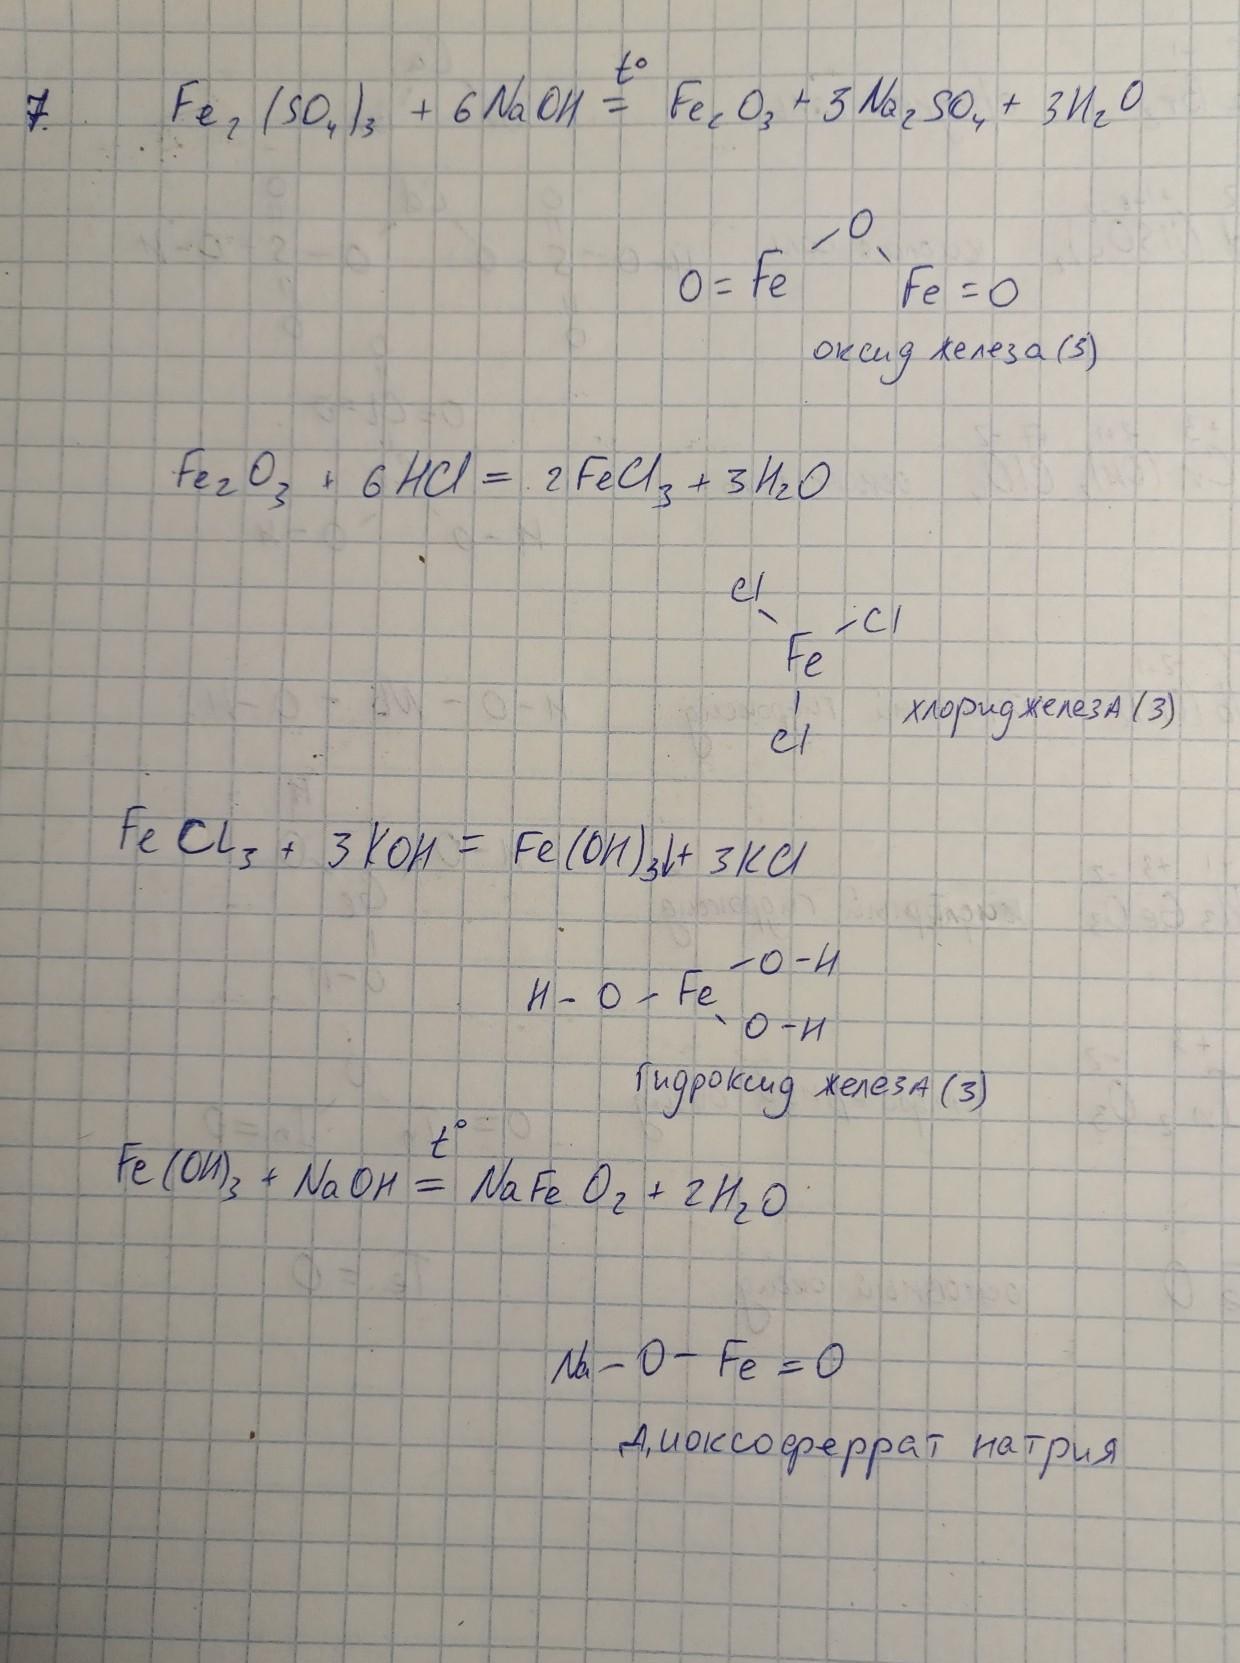 7. Fe₂(SO₄)₃ + 6NaOH =t° Fe₂O₃ + 3Na₂SO₄ + 3H₂O
O
O = Fe Fe = O
оксид железа (3)
Fe₂O₃ + 6HCl = 2FeCl₃ + 3H₂O
Cl
Cl
Fe
Cl
хлорид железа (3)
FeCl₃ + 3KOH = Fe(OH)₃↓ + 3KCl
O-H
H - O - Fe
O-H
Гидроксид железа (3)
Fe(OH)₃ + NaOH =t° NaFeO₂ + 2H₂O
Na - O - Fe = O
Диоксоферрат натрия